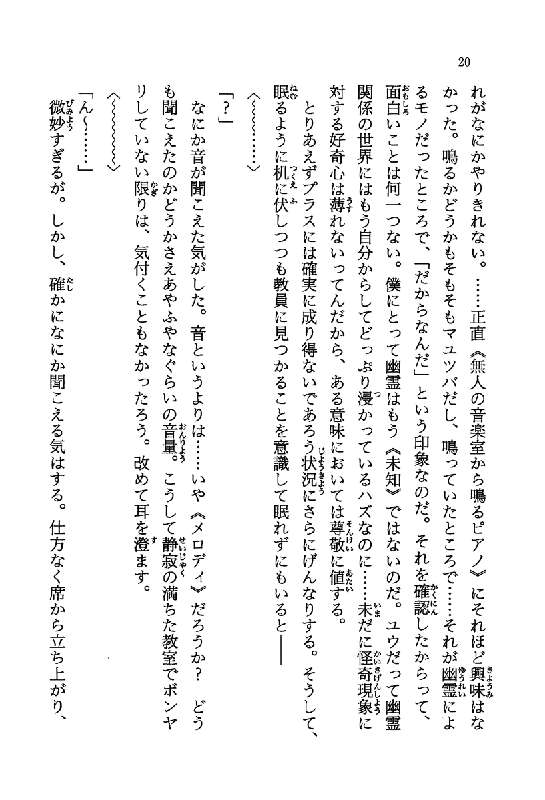 20
れがなにかやりきれない。……正直《無人の音楽室から鳴るピアノ》にそれほど興味はな
かった。鳴るかどうかもそもそもマユツバだし、鳴っていたところで……それが幽霊によ
るモノだったところで、「だからなんだ」という印象なのだ。それを確認したからって、
面白いことは何一つない。僕にとって幽霊はもう《未知》ではないのだ。ユウだって幽霊
関係の世界にはもう自分からしてどっぷり浸かっているハズなのに……未だに怪奇現象に
対する好奇心は薄れないってんだから、ある意味においては尊敬に値する。
とりあえずプラスには確実に成り得ないであろう状況にさらにげんなりする。そうして、
眠るように机に伏しつつも教員に見つかることを意識して眠れずにもいると――
〈～～～～～〉
「？」
なにか音が聞こえた気がした。音というよりは……いや《メロディ》だろうか？　どう
も聞こえたのかどうかさえあやふやなぐらいの音量。こうして静寂の満ちた教室でボンヤ
リしていない限りは、気付くこともなかったろう。改めて耳を澄ます。
〈～～～～～〉
「ん～……」
微妙すぎるが。しかし、確かになにか聞こえる気はする。仕方なく席から立ち上がり、